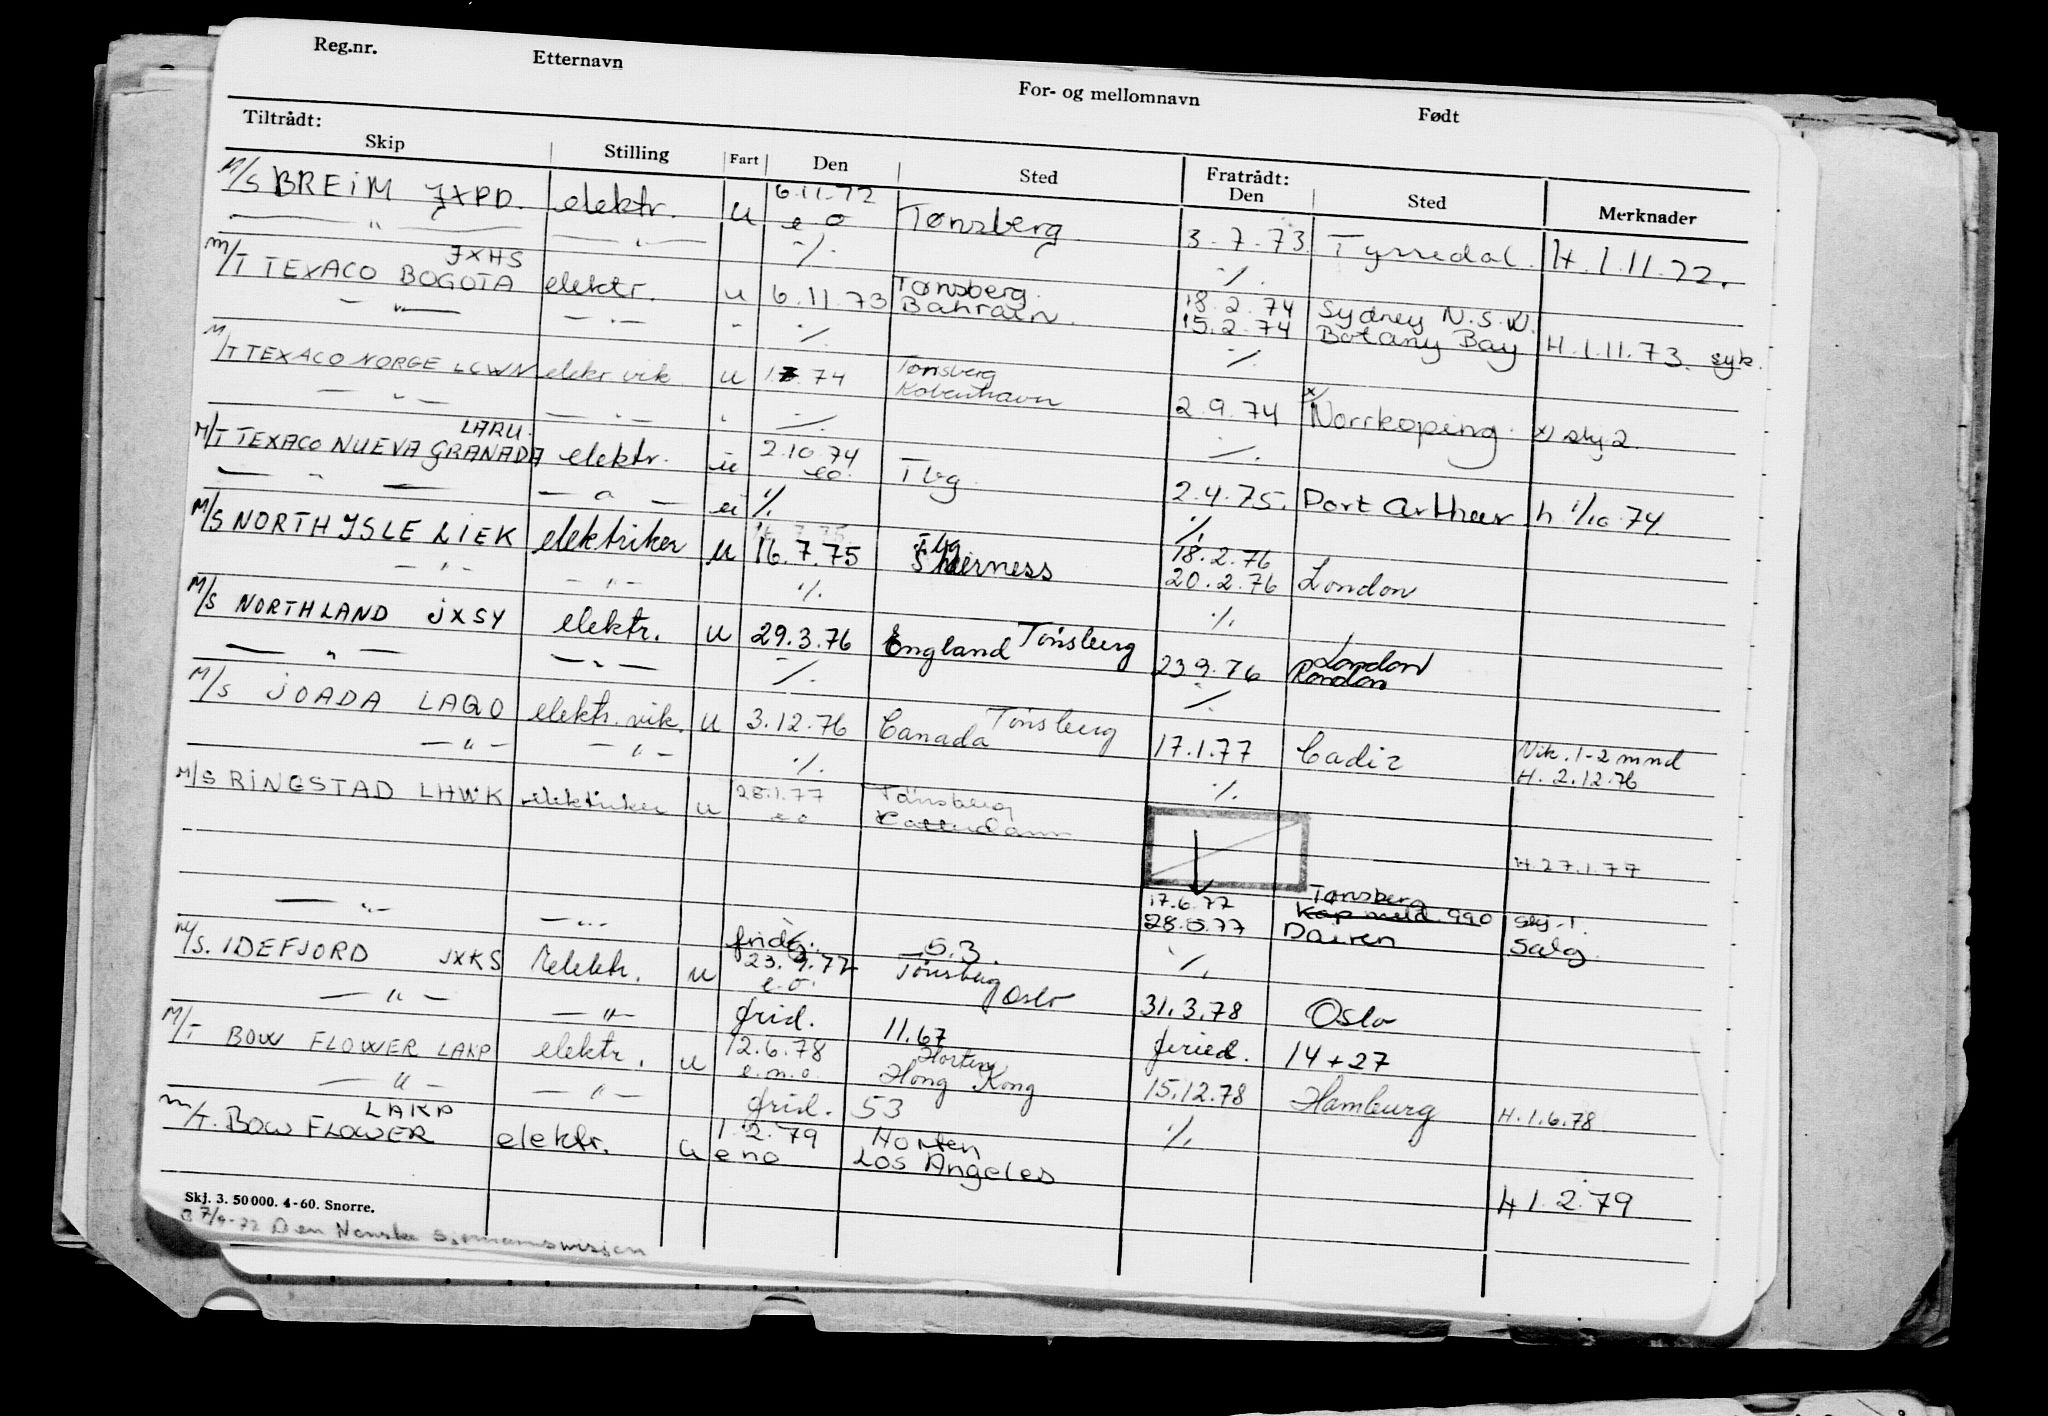 Reg.nr. Etternavn For- og mellomnavn Født
Tiltrådt: Fratrådt:
Skip Stilling Fart Den Sted Den Sted Merknader
M/S BREIM JXPD. elektr. u 6.11.72 eo Tønsberg 3.7.73 Tyssedal. H.1.11.72.
— " — — " — ·/. ·/.
M/T TEXACO BOGOTA JXHS elektr. u 6.11.73 Tønsberg. Bahrain. 18.2.74 Sydney N.S.W.
15.2.74 Botany Bay H.1.11.73. syk.
— " — — " — " ·/. ·/.
M/T TEXACO NORGE LCWN elektr vik u 1.7.74 Tønsberg København 2.9.74 x) Norrkoping. x) skj 2.
— " — — " — " ·/. ·/.
M/T TEXACO NUEVA GRANADA LARU. elektr. u 2.10.74 eo. Tbg 2.4.75. Port Arthur h 1/10.74.
— " — — " — u ·/. ·/.
M/S NORTH ISLE LIEK elektriker u 16.7.75 Tbg Sheerness 18.2.76
20.2.76 London
— " — — " — ·/. ·/.
M/S NORTHLAND JXSY elektr. u 29.3.76 England Tønsberg 23.9.76 London
— " — — " — ·/. ·/.
M/S JOADA LAQO elektr. vik. u 3.12.76 Canada Tønsberg 17.1.77 Cadiz Vik. 1-2 mnd
H. 2.12.76
— " — — " — ·/. ·/.
M/S RINGSTAD LHWK elektriker u 28.1.77 eo Tønsberg Rotterdam
H.27.1.77
17.6.77 Tønsberg
Kap meld. 990 skj.1.
— " — — " — 28.5.77 Dairen Salg
frid. 53. ·/.
M/S. IDEFJORD JXKS elektr. u 23.9.77 e.o. Tønsberg Oslo 31.3.78 Oslo
— " — — " — frid. 11.67 feried. 14+27
M/T BOW FLOWER LAKP elektr. u 12.6.78 e.m.o. Horten Hong Kong 15.12.78 Hamburg H.1.6.78
— " — — " — frid. 53 ·/.
M/T. BOW FLOWER LAKP elektr. u 1.2.79 emo Horten Los Angeles
H 1.2.79
Skj. 3. 50000. 4-60. Snorre.
B 7/9-72 Den Norske Sjømannsmisjon